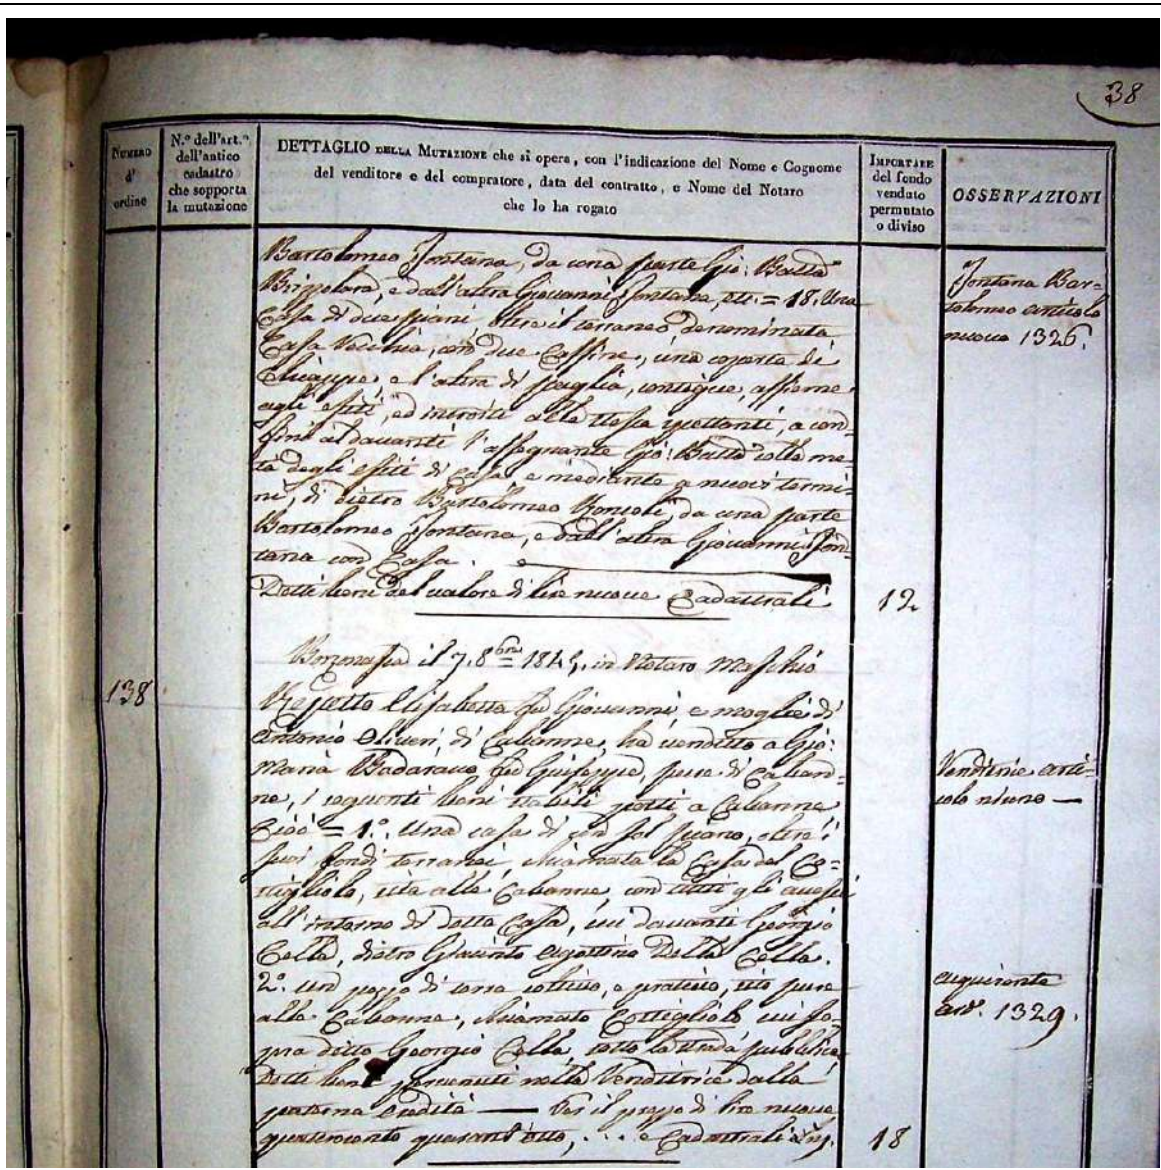 38
NUMERO d' ordine
N.° dell'art.° dell'antico cadastro che sopporta la mutazione
DETTAGLIO DELLA MUTAZIONE che si opera, con l'indicazione del Nome e Cognome
del venditore e del compratore, data del contratto, e Nome del Notaro
che lo ha rogato
IMPORTARE del fondo venduto permutato o diviso
OSSERVAZIONI
Bartolomeo Fontana, da una parte Gio: Batta
e dall'altra Giovanni Fontana, etc. = 18. Una
Casa di due piani, oltre il terraneo denominata
Casa Vecchia, con due Cassine, una coperta di
Chiappe, e l'altra di paglia, contigue, assieme
agli esiti, ed introiti alla stessa spettanti, a con-
fini al davanti l'assegnante Gio: Batta colla me-
tà degli esiti di Casa e mediante nuovi termi-
ni, di dietro Bartolomeo da una parte
Bartolomeo Fontana, e dall'altra Giovanni Fon-
tana con Casa.
Detti beni del valore di lire nuove Cadastrali
12
Fontana Bar-
tolomeo articolo
nuovo 1326.
Borzonasca il 7. 8bre in Notaro Maschio
138
Repetto Elisabetta fu Giovanni, e moglie di
Antonio Oliveri, di Cabanne, ha venduto a Gio:
Maria Badaracco fu Guiseppe, pure di Caban-
ne, i seguenti beni stabili posti a Cabanne
Cioè = 1.° Una casa di un sol piano, oltre i
suoi fondi terranei, chiamata la Casa del Co-
tigliolo, sita alle Cabanne, con tutti gli
all'intorno di detta Casa, cui davanti Georgio
Cella, dietro Giacinto Agostino Della Cella.
2.° un pezzo di terra coltivo, e prativo, sito pure
alle Cabanne, chiamato Cottigliolo cui so-
pra detto Georgio Cella, sotto la strada pubblica
Detti beni pervenuti nella Venditrice dalla
paterna eredità — Per il prezzo di lire nuove
quattrocento quarant'otto, . . . e Cadastrali
18
Venditrice arti-
colo niuno —
acquirente
art.° 1329.